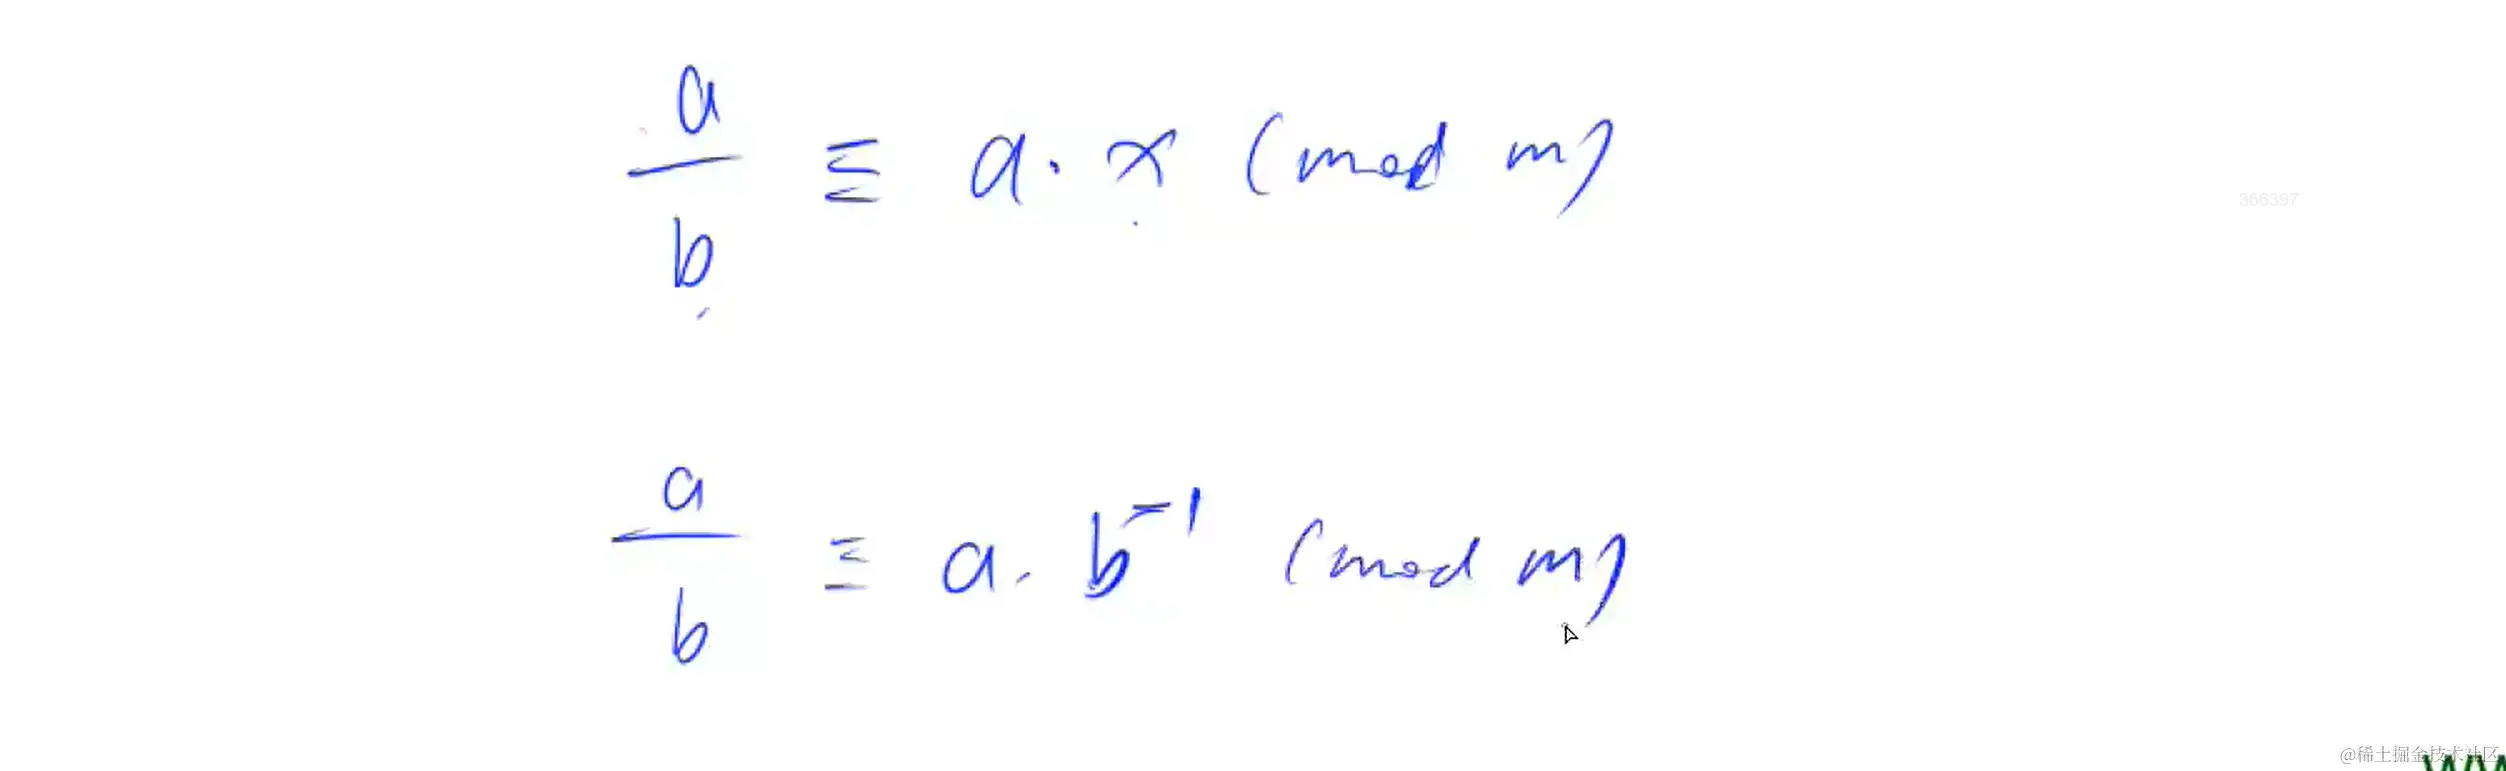 a/b ≡ a · x (mod m)
366397
a/b ≡ a · b⁻¹ (mod m)
@稀土掘金技术社区